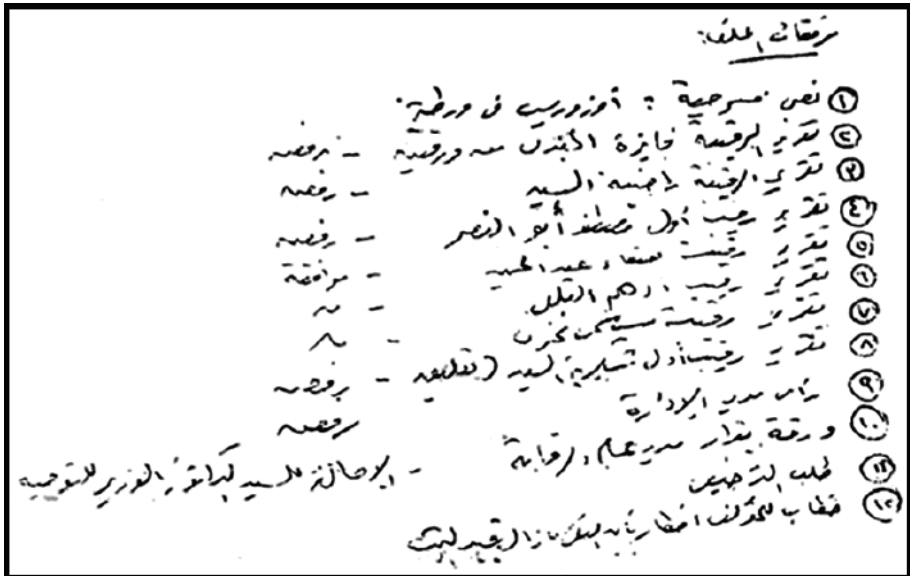 مرفقات الملف:
① نص مسرحية : أوزوريس فى ورطة.
② تقرير الرقيبة فايزة الجندى من ورقتين - برفضه
③ تقرير الرقيبة راضية السيد - رفضه
④ تقرير رقيب أول مصطفى أبو النصر - رفضه
⑤ تقرير رقيبة صفاء عبد الحميد - موافقة
⑥ تقرير رقيب أدهم
⑦ تقرير رقيبة
⑧ تقرير رقيب أول شكرية السيد - برفضه
⑨ رأى مدير الإدارة رفضه
⑩ ورقة بقرار مدير عام الرقابة - الإحالة للسيد الدكتور الوزير للتوجيه
طلب الترخيص
⑫ خطاب للمؤلف إخطار بأن